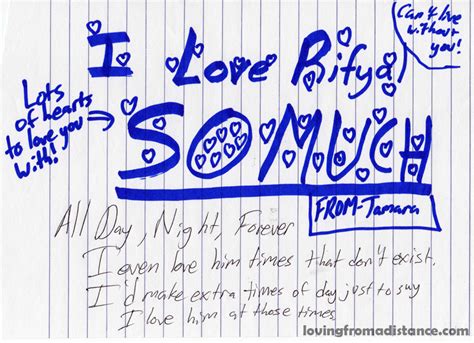 I Love Rifya
SO MUCH
Can't live
without
you!
Lots
of hearts
to love you
with!
FROM-Tamara
All Day, Night, Forever
I even love him times that don't exist.
I'd make extra times of day just to say
I love him at those times
lovingfromadistance.com